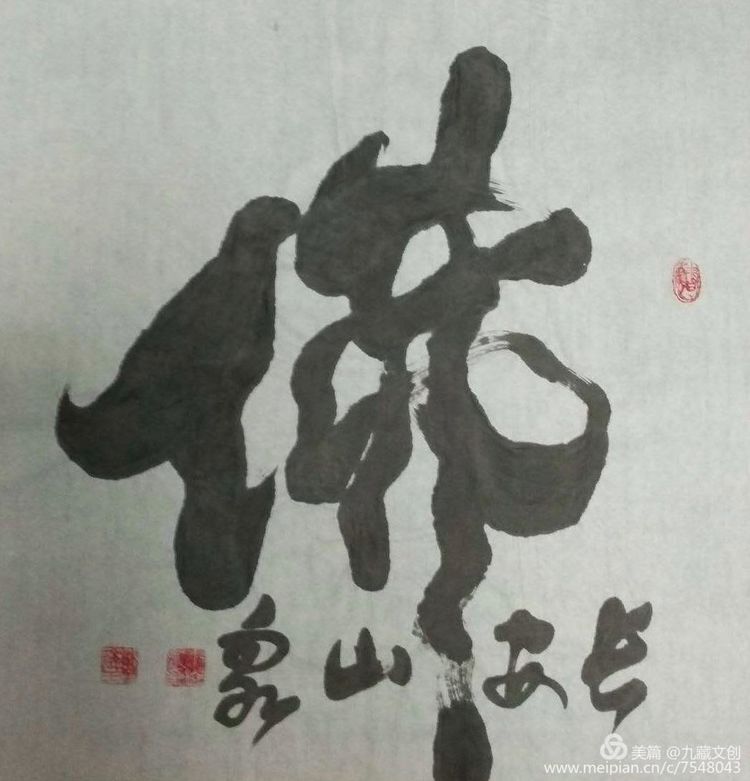 佛
长安山泉
美篇 @九藏文创
www.meipian.cn/c/7548043